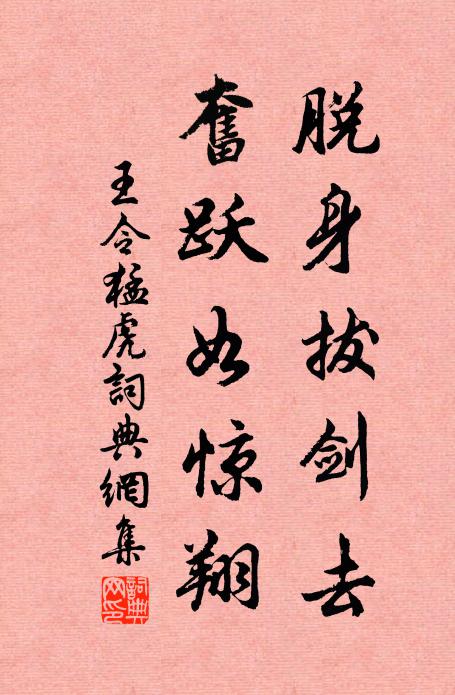 脱身拔剑去
奋跃如惊翔
王令猛虎詞典網集
詞典网印